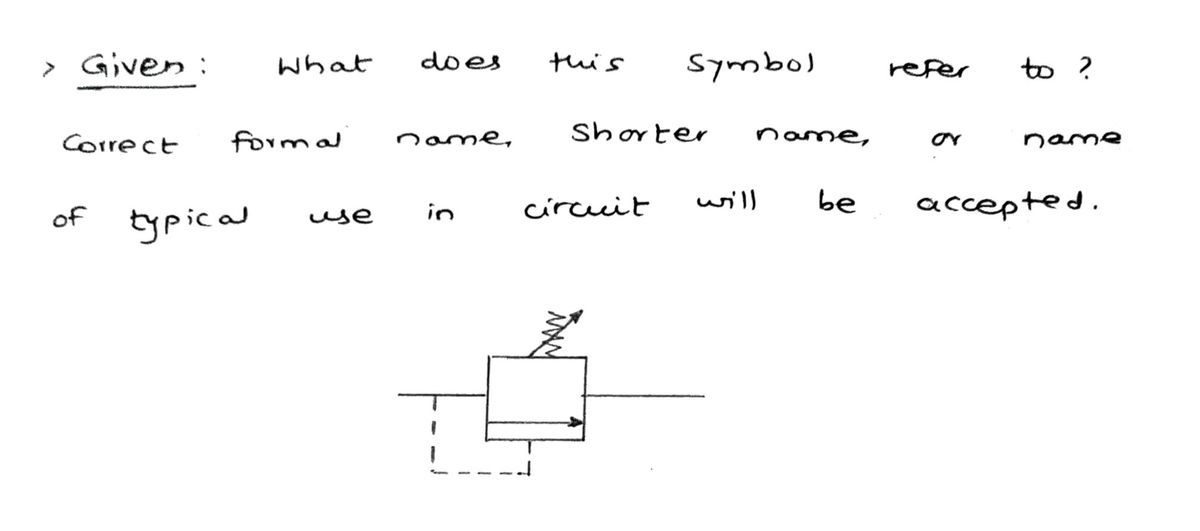 > Given : What does this symbol refer to ?
Correct formal name, Shorter name, or name
of typical use in circuit will be accepted.